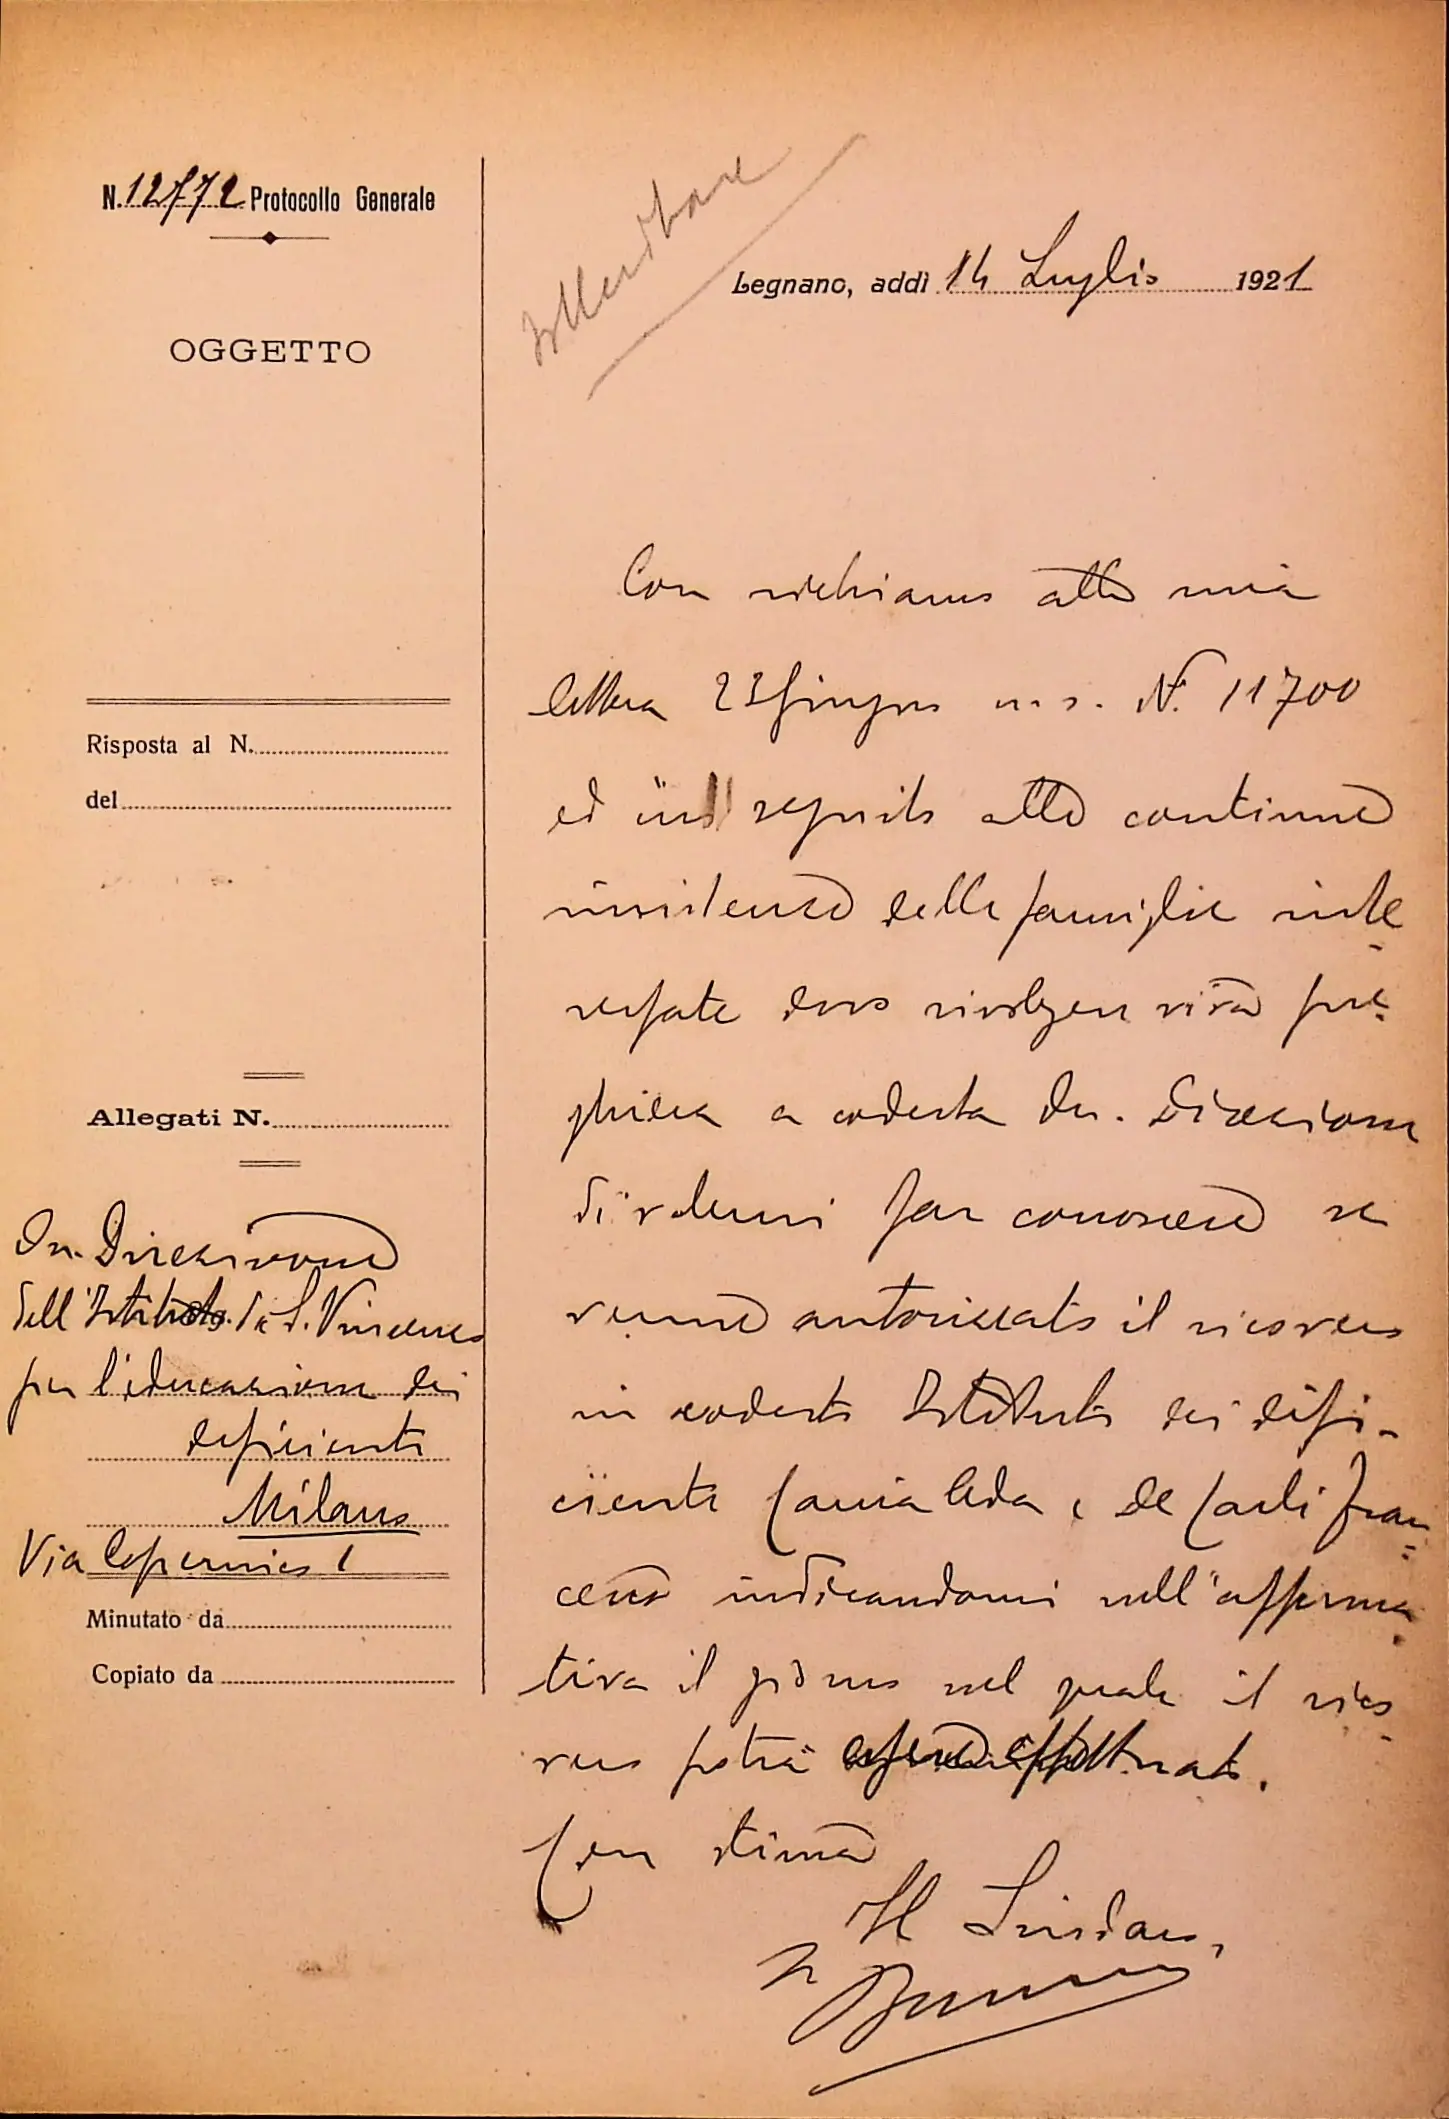 N. 12772 Protocollo Generale
Legnano, addì 14 Luglio 1921
OGGETTO
Risposta al N.
del
Allegati N.
On. Direzione
dell'Istituto di S. Vincenzo
per l'educazione dei
deficienti
Milano
Via Copernico 1
Minutato da
Copiato da
Con richiamo alla mia
lettera 23 giugno u. s. N. 11700
ed in seguito alle continue
insistenze delle famiglie inte
ressate devo rivolgere viva pre
ghiera a codesta On. Direzione
di volermi far conoscere se
venne autorizzato il ricovero
in codesto Istituto dei defi-
cienti Cania Leda e De Carli Fran
cesco indicandomi nell'afferma
tiva il giorno nel quale il rico
vero potrà essere effettuato.
Con stima
Il Sindaco,